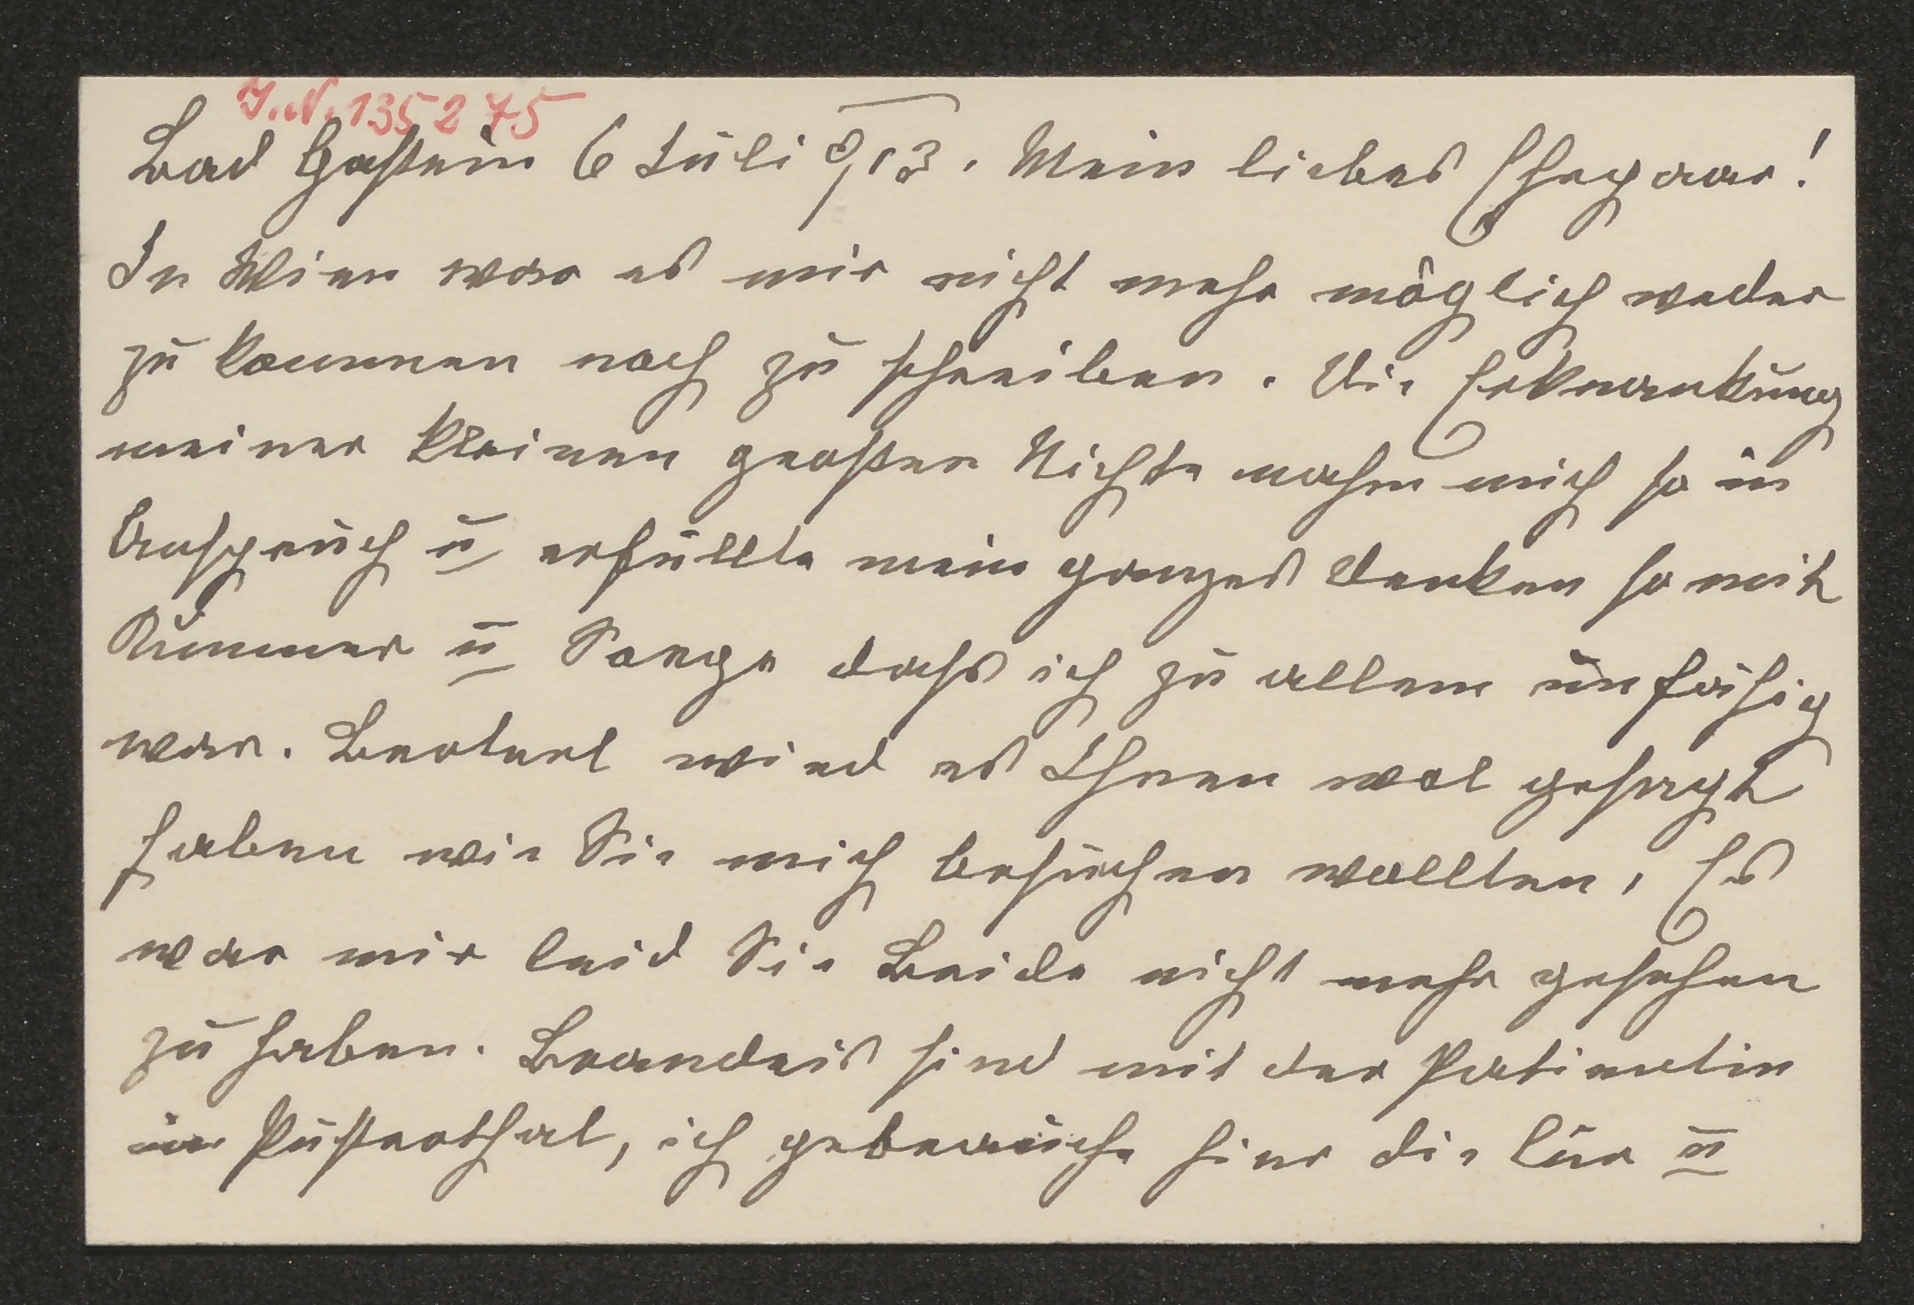 J.N. 135275
Bad Gastein 6 Juli 913. Mein liebes Ehepaar!
In Wien war es mir nicht mehr möglich weder
zu kommen noch zu schreiben. Die Erkrankung
meiner kleinen grossen Nichte nahm mich so in
Anspruch u erfüllte mein ganzes Denken so mit
Kummer u Sorge dass ich zu allem unfähig
war. Berterl wird es Ihnen wol gesagt
haben wie Sie mich besuchen wollten, Es
war mir leid Sie Beide nicht mehr gesehen
zu haben. Brandeis sind mit der Patientin
im Pusterthal, ich gebrauche hier die Cur u